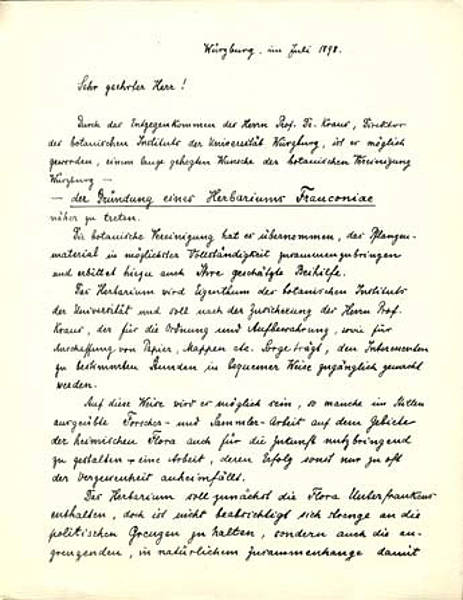 Würzburg, im Juli 1898.
Sehr geehrter Herr!
Durch das Entgegenkommen des Herrn Prof. Dr. Kraus, Direktor
des botanischen Instituts der Universität Würzburg, ist es möglich
geworden, einem lange gehegten Wunsche der botanischen Vereinigung
Würzburg —
— der Gründung eines Herbariums Franconiae
näher zu treten.
Die botanische Vereinigung hat es übernommen, das Pflanzen-
material in möglichster Vollständigkeit zusammenzubringen
und erbittet hiezu auch Ihre geschätzte Beihilfe.
Das Herbarium wird Eigenthum des botanischen Instituts
der Universität und soll nach der Zusicherung des Herrn Prof.
Kraus, der für die Ordnung und Aufbewahrung, sowie für
Anschaffung von Papier, Mappen etc. Sorge trägt, den Interessenten
zu bestimmten Stunden in bequemer Weise zugänglich gemacht
werden.
Auf diese Weise wird es möglich sein, so manche im Stillen
ausgeübte Forscher- und Sammler-Arbeit auf dem Gebiete
der heimischen Flora auch für die Zukunft nutzbringend
zu gestalten – eine Arbeit, deren Erfolg sonst nur zu oft
der Vergessenheit anheimfällt.
Das Herbarium soll zunächst die Flora Unterfrankens
enthalten, doch ist nicht beabsichtigt sich strenge an die
politischen Grenzen zu halten, sondern auch die an-
grenzenden, in natürlichem Zusammenhange damit